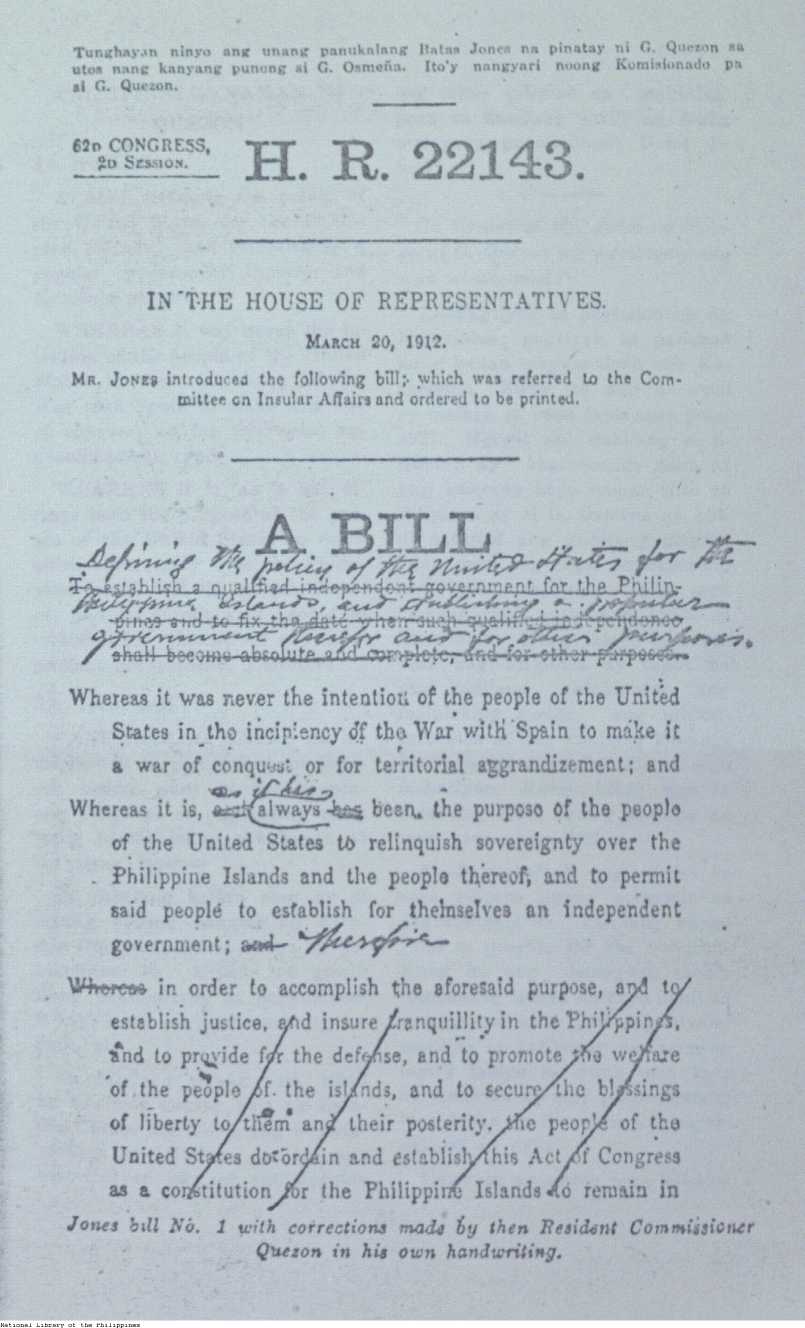 Tunghayan ninyo ang unang panukalang Batas Jones na pinatay ni G. Quezon sa
utos nang kanyang punong si G. Osmeña. Ito'y nangyari noong Komisionado pa
si G. Quezon.
62D CONGRESS,
2D SESSION.
H. R. 22143.
IN THE HOUSE OF REPRESENTATIVES.
MARCH 20, 1912.
MR. JONES introduced the following bill; which was referred to the Com-
mittee on Insular Affairs and ordered to be printed.
A BILL
Defining the policy of the United States for the
To establish a qualified independent government for the Philip-
Philippine Islands, and establishing a popular
pines and to fix the date when such qualified independence
government therefor and for other purposes.
shall become absolute and complete, and for other purposes.
Whereas it was never the intention of the people of the United
States in the incipiency of the War with Spain to make it
a war of conquest or for territorial aggrandizement; and
as it has
Whereas it is, and always has been, the purpose of the people
of the United States to relinquish sovereignty over the
Philippine Islands and the people thereof, and to permit
said people to establish for themselves an independent
government; and Therefore
Whereas in order to accomplish the aforesaid purpose, and to
establish justice, and insure tranquillity in the Philippines,
and to provide for the defense, and to promote the welfare
of the people of the islands, and to secure the blessings
of liberty to them and their posterity, the people of the
United States do ordain and establish this Act of Congress
as a constitution for the Philippine Islands to remain in
Jones bill No. 1 with corrections made by then Resident Commissioner
Quezon in his own handwriting.
National Library of the Philippines